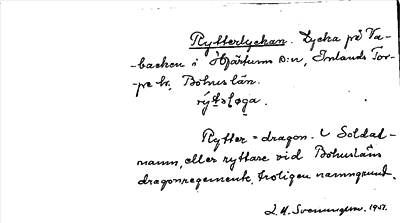 Rytterlyckan. Lycka på Va-
-backen i Hjärtums s:n, Inlands Tor-
pe hr, Bohuslän.
Rytter = dragon. Soldat-
namn, eller ryttare vid Bohusläns
dragonregemente, troligen namngrund.
1951.